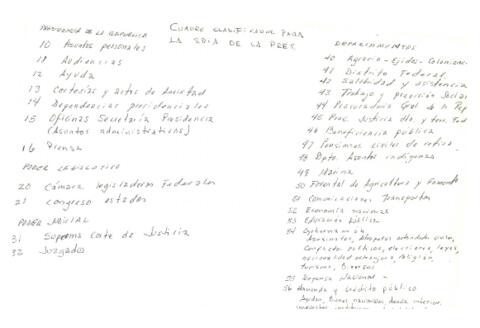 PRESIDENCIA DE LA REPUBLICA
10 Asuntos personales
11 Audiencias
12 Ayuda
13 Cortesías y actos de
14 Dependencias presidenciales
15 Oficinas Secretaría Presidencia
(Asuntos administrativos)
16 Prensa
PODER LEGISLATIVO
20 Cámara legisladores Federales
21 Congreso estados
PODER JUDICIAL
31 Suprema Corte de Justicia
32 Juzgados
CUADRO CLASIFICADOR PARA
LA SRIA DE LA PRES
DEPARTAMENTOS
40 Agrario - Ejidos - Colonizac
41 Distrito Federal
42 Salubridad y asistencia
43 Trabajo y previsión Social
44 Procuraduría Gral de la Rep
45 Proc. Justicia dto. y terr. Fed
46 Beneficiencia pública
47 Pensiones civiles de retiro
48 Dpto. Asuntos indígenas
49 Marina
50 Forestal de Agricultura y Fomento
51 Comunicaciones Transportes
52 Economía nacional
53 Educación Pública
54 Gobernación
Asesinatos, Atropellos
Conflictos políticos, elecciones, leyes,
nacionalidad extranjera, religión,
turismo, Diversos
55 Defensa Nacional -
56 Hacienda y Crédito público
Ayudas, Bienes nacionales, deuda interior,